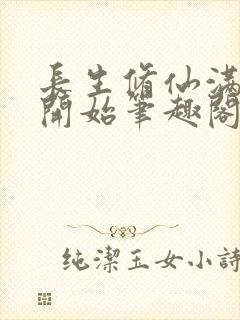 長生脩仙滿
開始筆趣閣
純潔玉女小詩